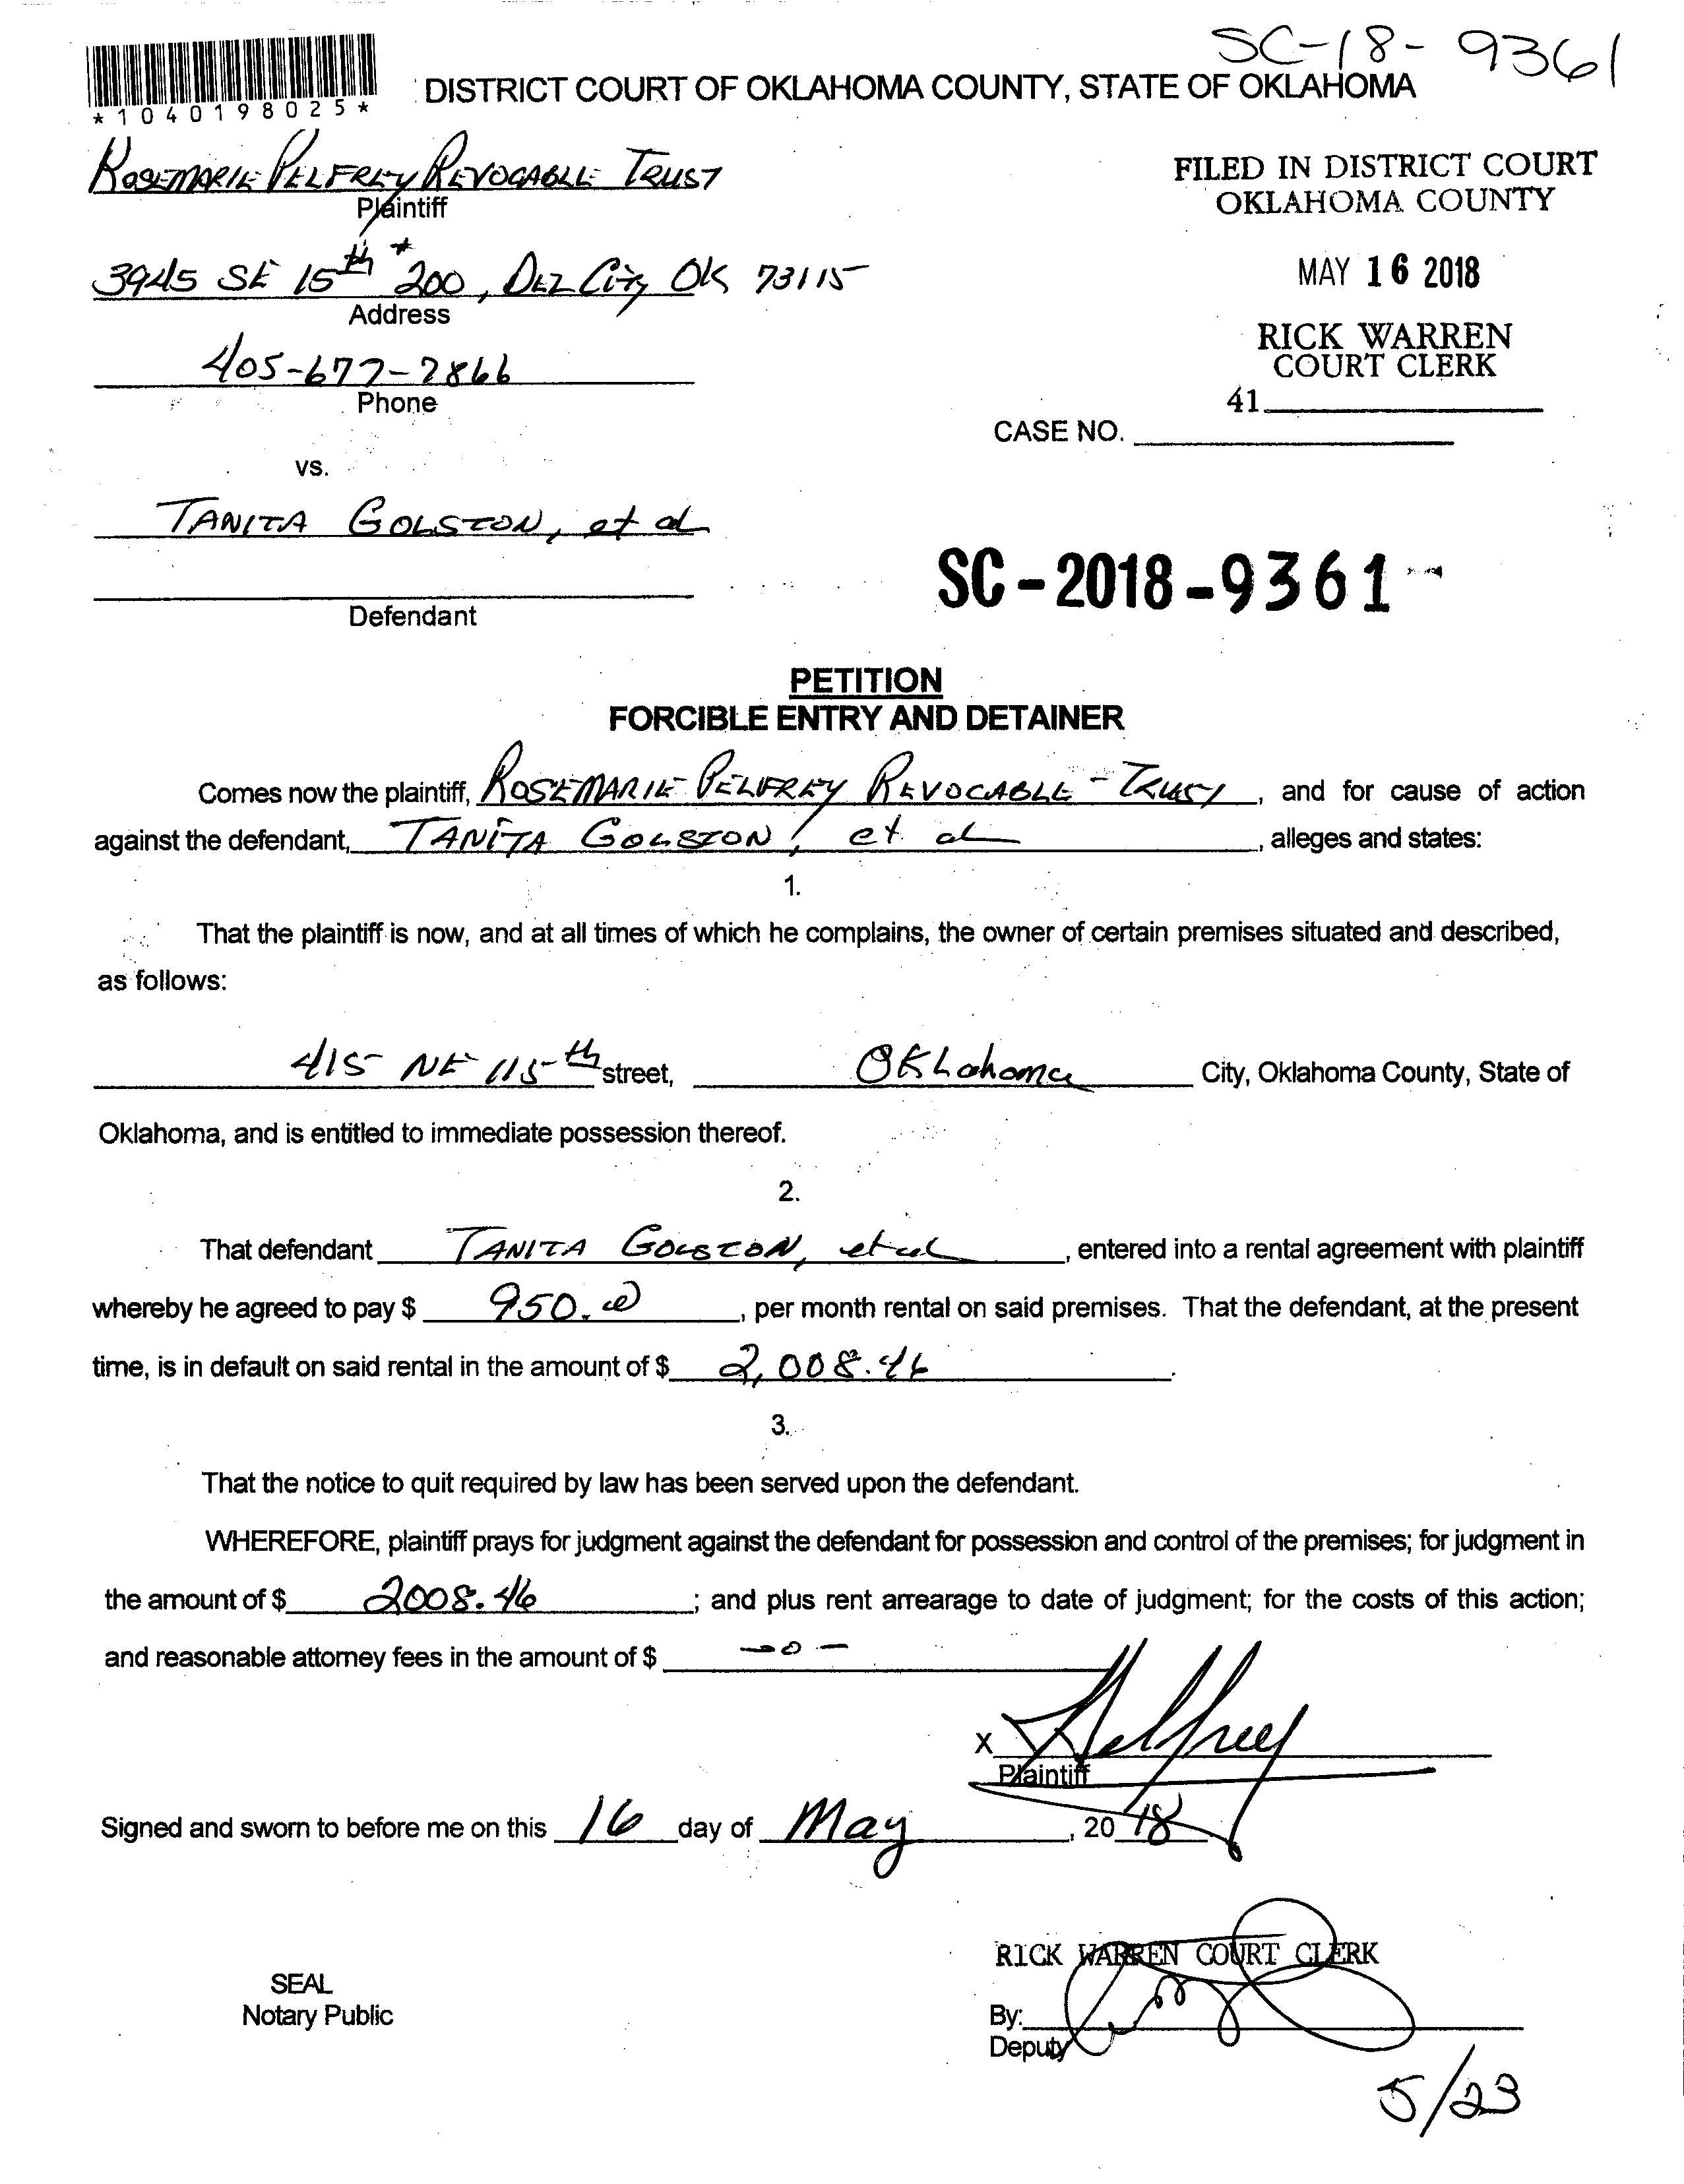 SC-18-9361
*1040198025*
DISTRICT COURT OF OKLAHOMA COUNTY, STATE OF OKLAHOMA
ROSEMARIE PELFREY REVOCABLE TRUST
Plaintiff
FILED IN DISTRICT COURT
OKLAHOMA COUNTY
3945 SE 15th #200, DEL City OK 73115
Address
MAY 16 2018
RICK WARREN
COURT CLERK
405-677-7866
Phone
41
CASE NO.
vs.
TANITA GOLSTON, et al
Defendant
SC-2018-9361
PETITION
FORCIBLE ENTRY AND DETAINER
Comes now the plaintiff, ROSEMARIE PELFREY REVOCABLE TRUST, and for cause of action
against the defendant, TANITA GOLSTON, et al, alleges and states:
1.
That the plaintiff is now, and at all times of which he complains, the owner of certain premises situated and described,
as follows:
415 NE 115th street, Oklahoma City, Oklahoma County, State of
Oklahoma, and is entitled to immediate possession thereof.
2.
That defendant TANITA GOLSTON, et al, entered into a rental agreement with plaintiff
whereby he agreed to pay $ 950.00, per month rental on said premises. That the defendant, at the present
time, is in default on said rental in the amount of $ 2,008.46.
3.
That the notice to quit required by law has been served upon the defendant.
WHEREFORE, plaintiff prays for judgment against the defendant for possession and control of the premises; for judgment in
the amount of $ 2008.46; and plus rent arrearage to date of judgment; for the costs of this action;
and reasonable attorney fees in the amount of $ -0-
X Pelfrey
Plaintiff
Signed and sworn to before me on this 16 day of May, 2018
RICK WARREN COURT CLERK
SEAL
Notary Public
By:
Deputy
5/23